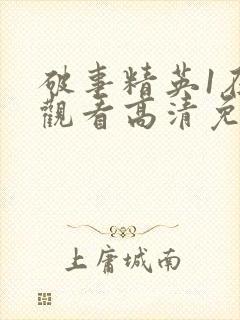 破事精英1在
觀看高清免
上庸城南